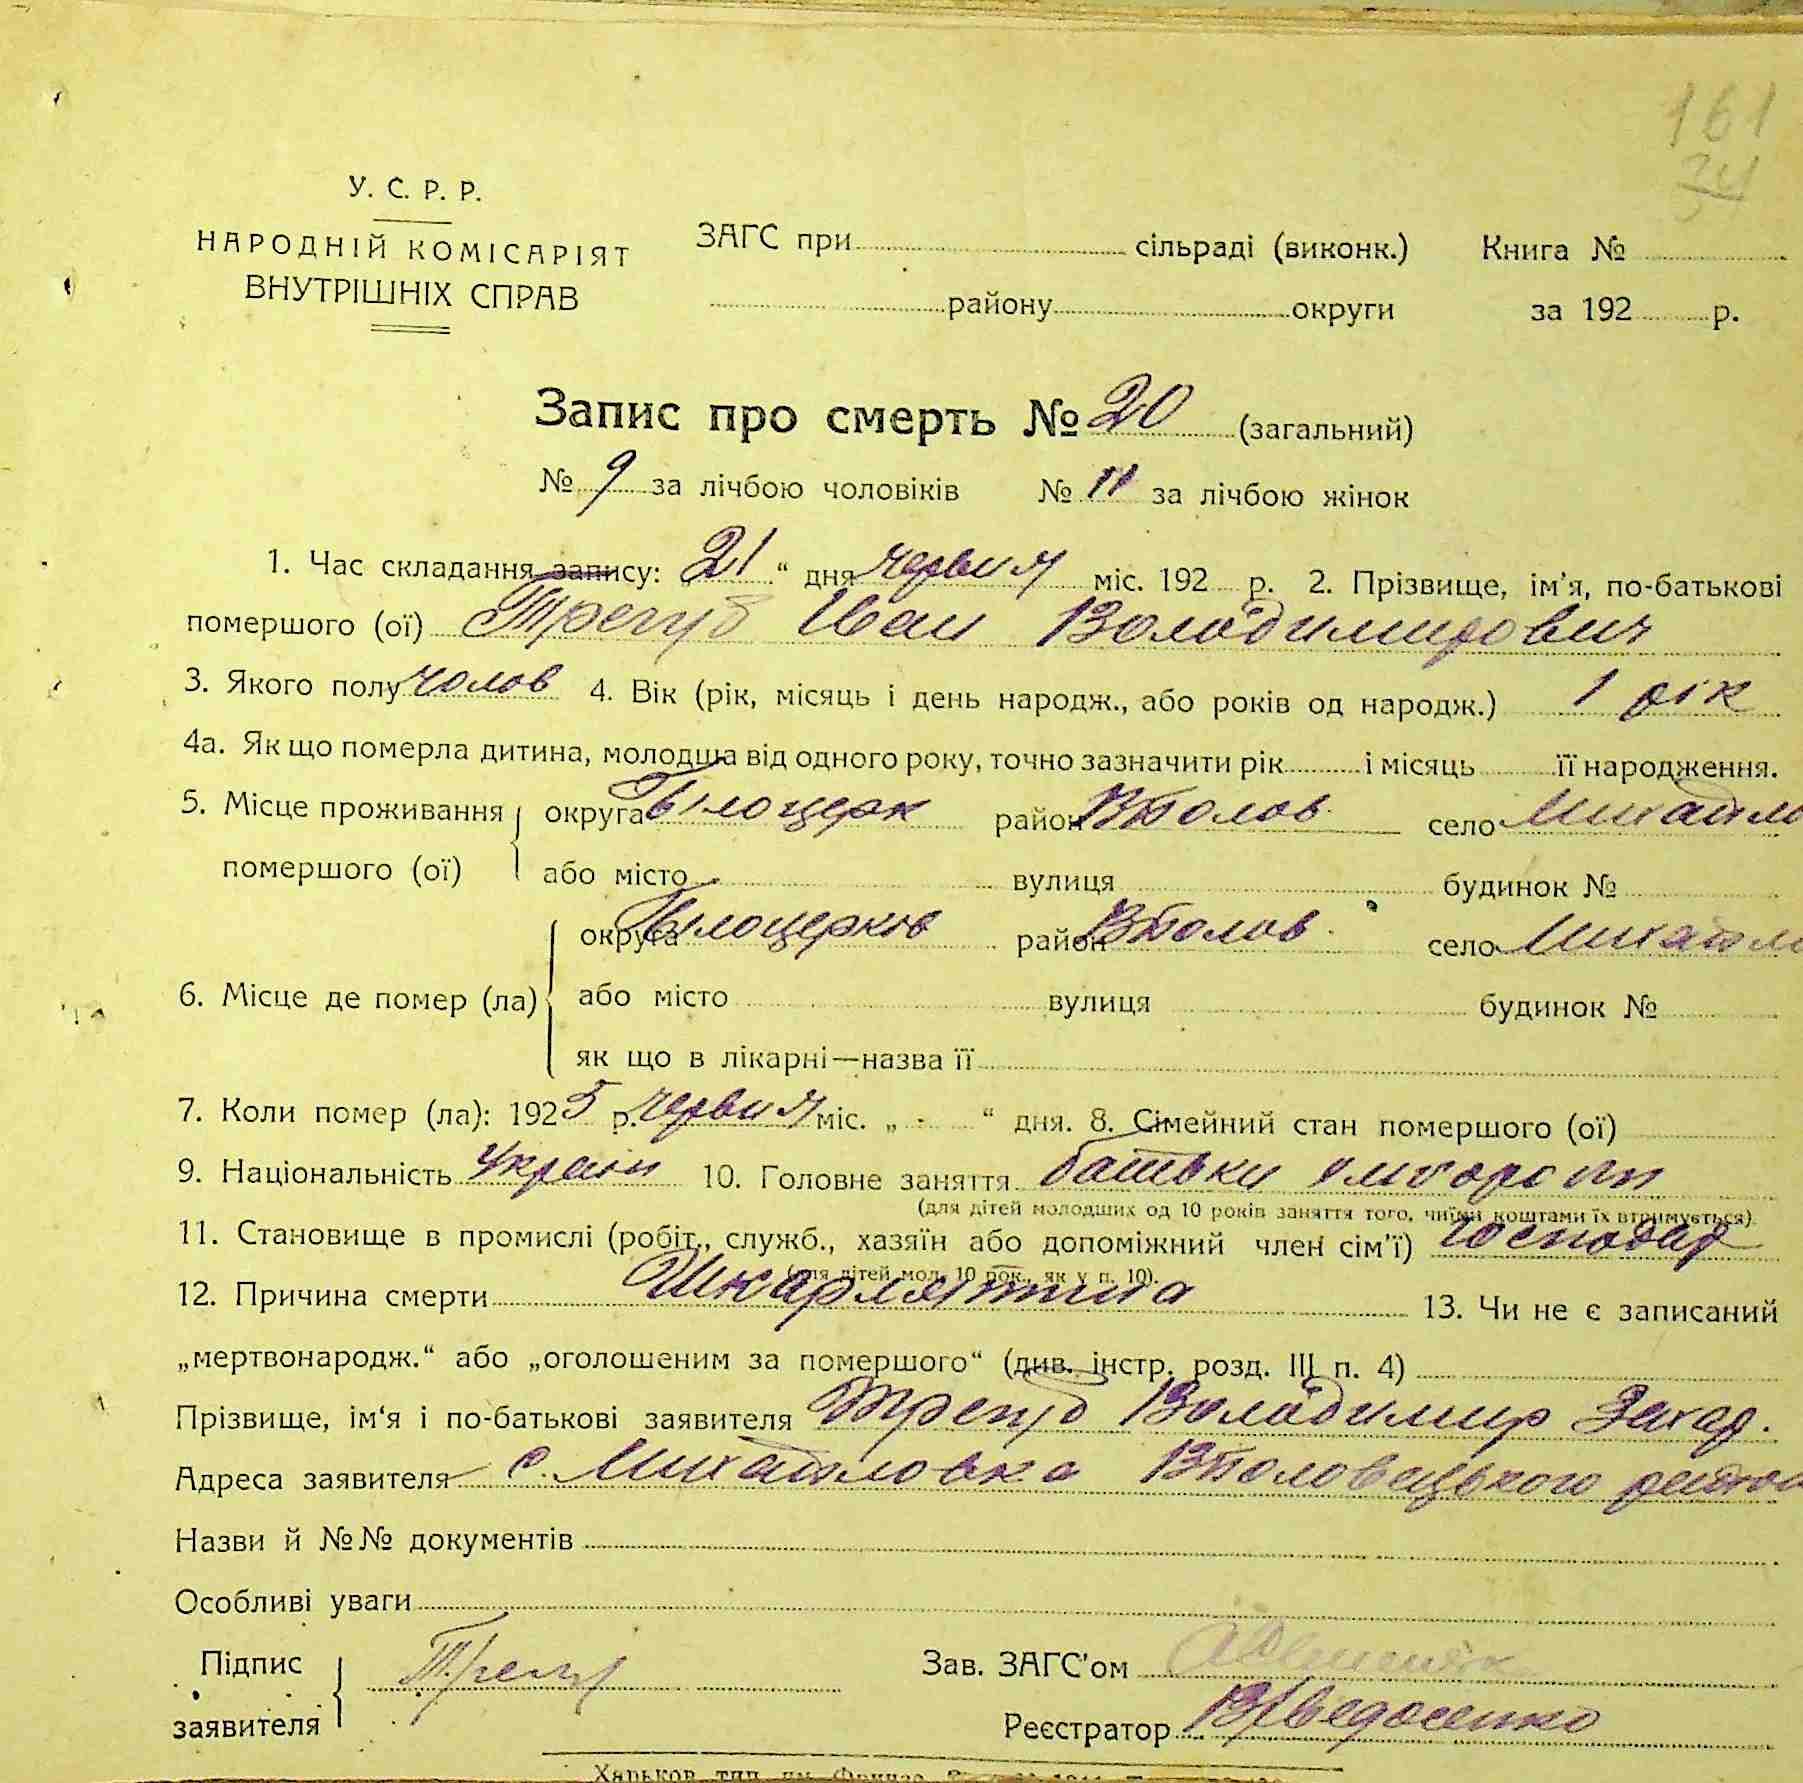 161
34
У. С. Р. Р.
НАРОДНІЙ КОМІСАРІЯТ
ВНУТРІШНІХ СПРАВ
ЗАГС при сільраді (виконк.) Книга №
району округи за 192 р.
Запис про смерть № 20 (загальний)
№ 9 за лічбою чоловіків № 11 за лічбою жінок
1. Час складання запису: 21 “ дня червня міс. 192 р. 2. Прізвище, ім'я, по-батькові
помершого (ої) Трегуб Іван Володимирович
3. Якого полу чолов 4. Вік (рік, місяць і день народж., або років од народж.) 1 рік
4а. Як що померла дитина, молодша від одного року, точно зазначити рік і місяць її народження.
5. Місце проживання округа Білоцерк район ВПолов. село Михайло
помершого (ої) або місто вулиця будинок №
округа Білоцерков район ВПолов. село Михайло
6. Місце де помер (ла) або місто вулиця будинок №
як що в лікарні—назва її
7. Коли помер (ла): 1925 р. червня міс. „ - “ дня. 8. Сімейний стан помершого (ої)
9. Національність Україн 10. Головне заняття батьки хлібороби
(для дітей молодших од 10 років заняття того, чиїми коштами їх втримується).
11. Становище в промислі (робіт., служб., хазяїн або допоміжний член сім'ї) господар
(для дітей мол. 10 рок., як у п. 10).
12. Причина смерти Шкарлятина 13. Чи не є записаний
„мертвонародж.“ або „оголошеним за помершого“ (див. інстр. розд. III п. 4)
Прізвище, ім‘я і по-батькові заявителя Трегуб Володимир Захар.
Адреса заявителя с. Михайловка ВПоловецького район
Назви й №№ документів
Особливі уваги
Підпис Зав. ЗАГС'ом
заявителя Реєстратор
Харьков, тип. им. Фрунзе